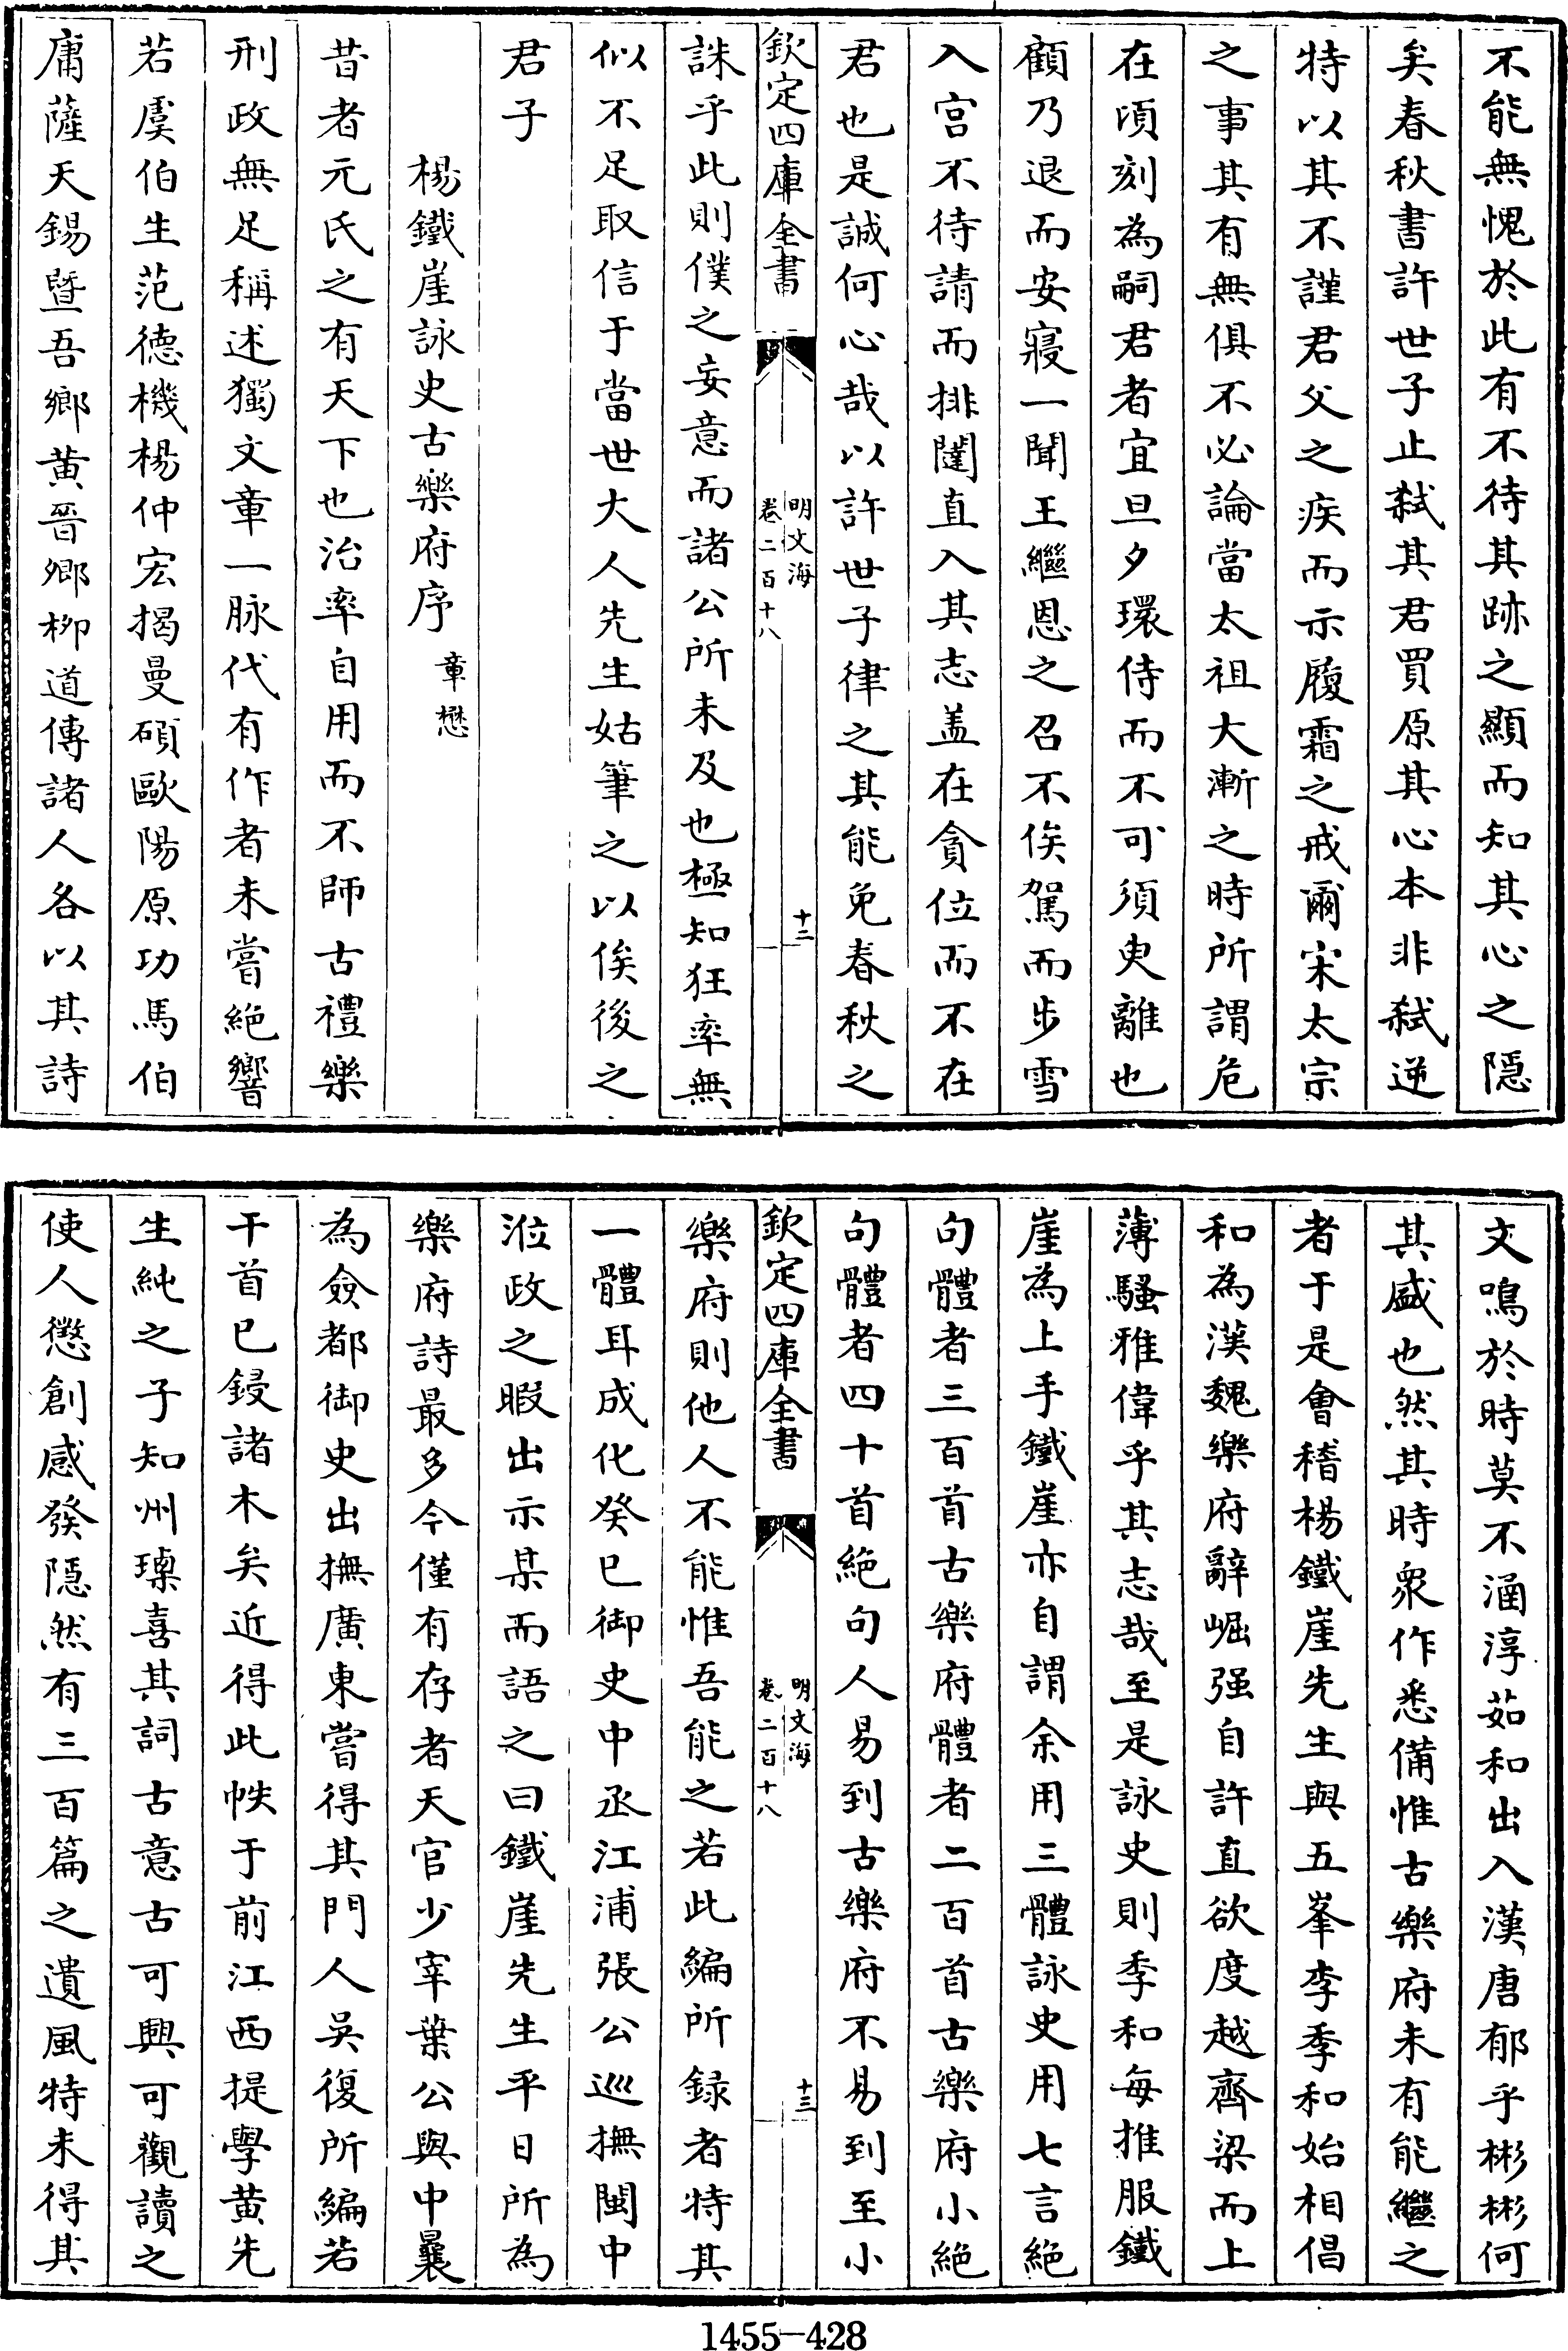 不能無愧於此有不待其跡之顯而知其心之隠
矣春秋書許世子止弑其君買原其心本非弑逆
特以其不謹君父之疾而示履霜之戒爾宋太宗
之事其有無俱不必論當太祖大漸之時所謂危
在頃刻為嗣君者宜旦夕環侍而不可須臾離也
顧乃退而安寢一聞王繼恩之召不俟駕而步雪
入宫不待請而排闥直入其志盖在貪位而不在
君也是誠何心哉以許世子律之其能免春秋之
欽定四庫全書
明文海
卷二百十八
十二
誅乎此則僕之妄意而諸公所未及也極知狂率無
似不足取信于當世大人先生姑筆之以俟後之
君子
楊鐵崖詠史古樂府序 章懋
昔者元氏之有天下也治率自用而不師古禮樂
刑政無足稱述獨文章一脉代有作者未嘗絶響
若虞伯生范德機楊仲宏揭曼碩歐陽原功馬伯
庸薩天錫暨吾鄉黄晉卿栁道傳諸人各以其詩
文鳴於時莫不涵淳茹和出入漢唐郁乎彬彬何
其盛也然其時衆作悉備惟古樂府未有能繼之
者于是會稽楊鐵崖先生與五峯李季和始相倡
和為漢魏樂府辭崛强自許直欲度越齊梁而上
薄騷雅偉乎其志哉至是詠史則季和每推服鐵
崖為上手鐵崖亦自謂余用三體詠史用七言絶
句體者三百首古樂府體者二百首古樂府小絶
句體者四十首絶句人易到古樂府不易到至小
欽定四庫全書
明文海
卷二百十八
十三
樂府則他人不能惟吾能之若此編所録者特其
一體耳成化癸巳御史中丞江浦張公巡撫閩中
涖政之暇出示某而語之曰鐵崖先生平日所為
樂府詩最多今僅有存者天官少宰葉公與中曩
為僉都御史出撫廣東嘗得其門人吳復所編若
干首已鋟諸木矣近得此帙于前江西提學黄先
生純之子知州璖喜其詞古意古可興可觀讀之
使人懲創感發隠然有三百篇之遺風特未得其
1455-428